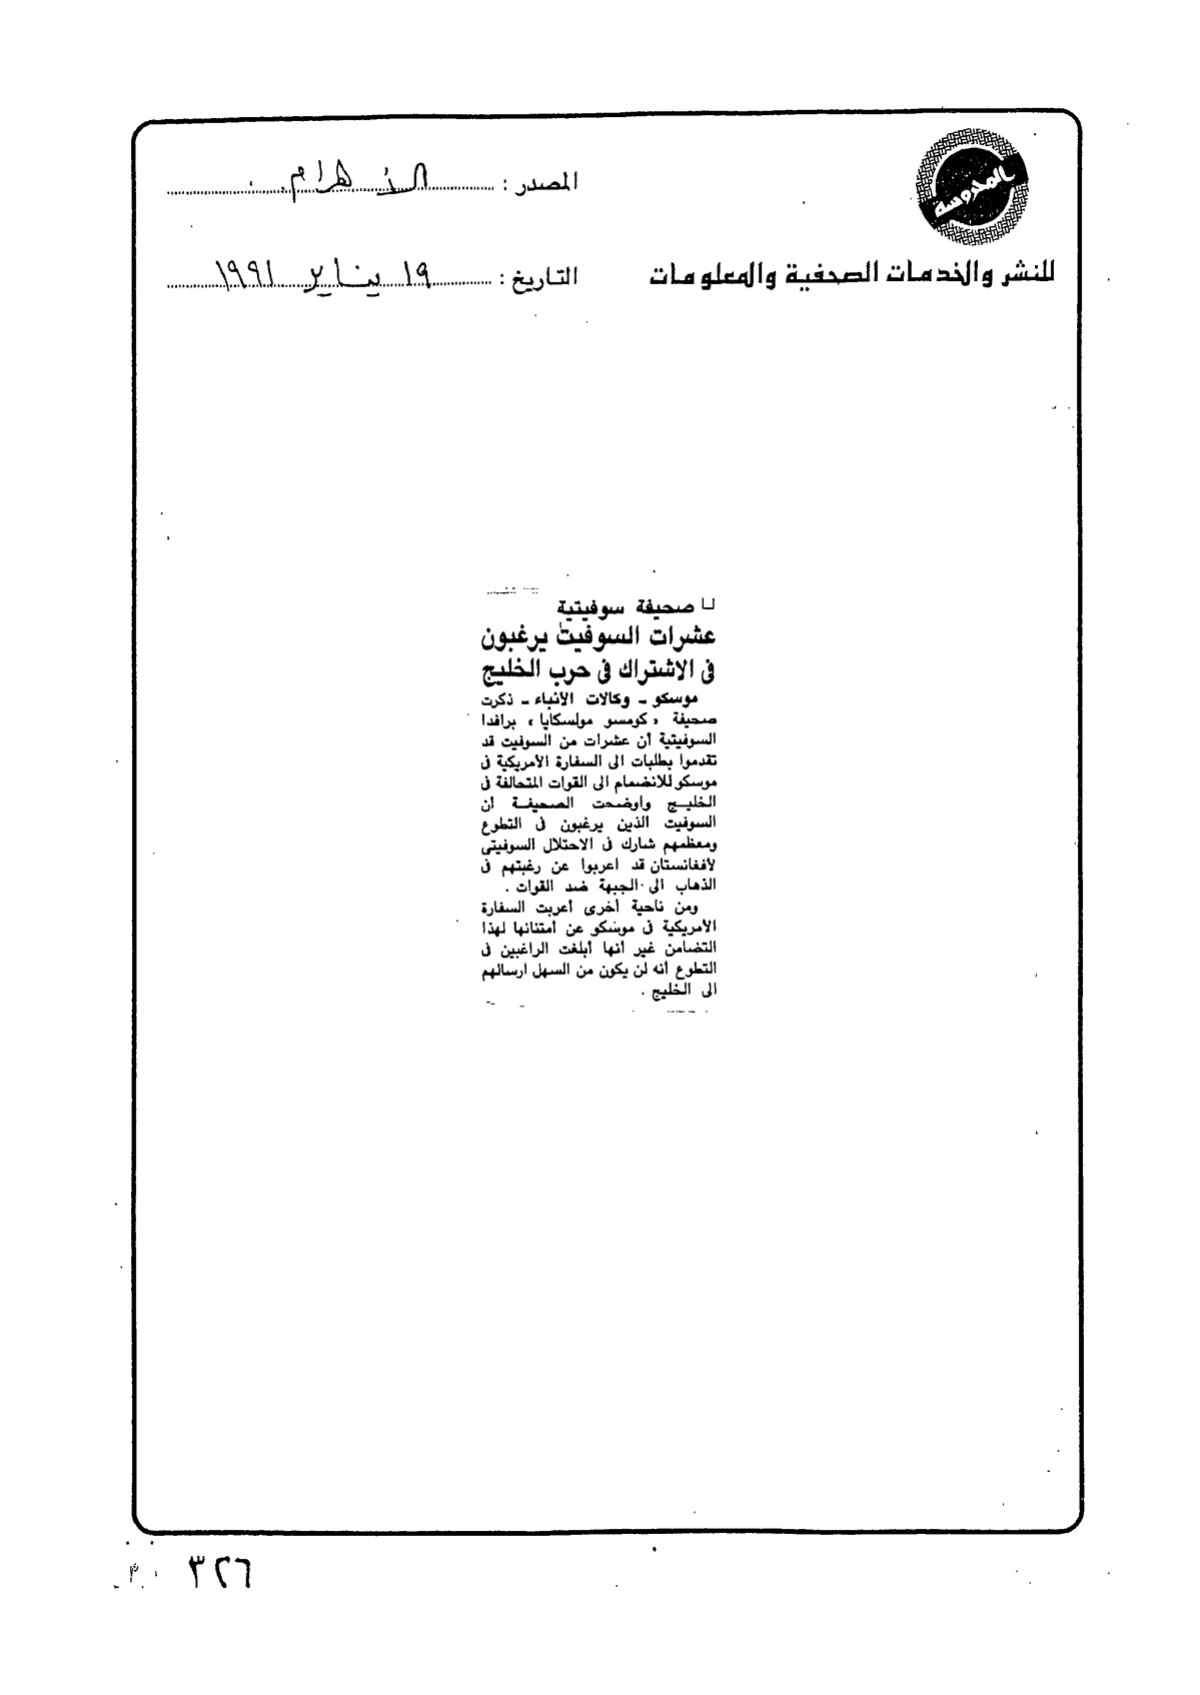 المحروسة
للنشر والخدمات الصحفية والمعلومات
المصدر : الأهرام
التاريخ : ١٩ يناير ١٩٩١
صحيفة سوفيتية
عشرات السوفيت يرغبون
فى الاشتراك فى حرب الخليج
موسكو - وكالات الأنباء - ذكرت
صحيفة « كومسو مولسكايا » برافدا
السوفيتية أن عشرات من السوفيت قد
تقدموا بطلبات الى السفارة الأمريكية فى
موسكو للانضمام الى القوات المتحالفة فى
الخليج وأوضحت الصحيفة أن
السوفيت الذين يرغبون فى التطوع
ومعظمهم شارك فى الاحتلال السوفيتى
لافغانستان قد اعربوا عن رغبتهم فى
الذهاب الى الجبهة ضد القوات .
ومن ناحية أخرى أعربت السفارة
الأمريكية فى موسكو عن أمتنانها لهذا
التضامن غير أنها أبلغت الراغبين فى
التطوع أنه لن يكون من السهل ارسالهم
الى الخليج .
٣٢٦